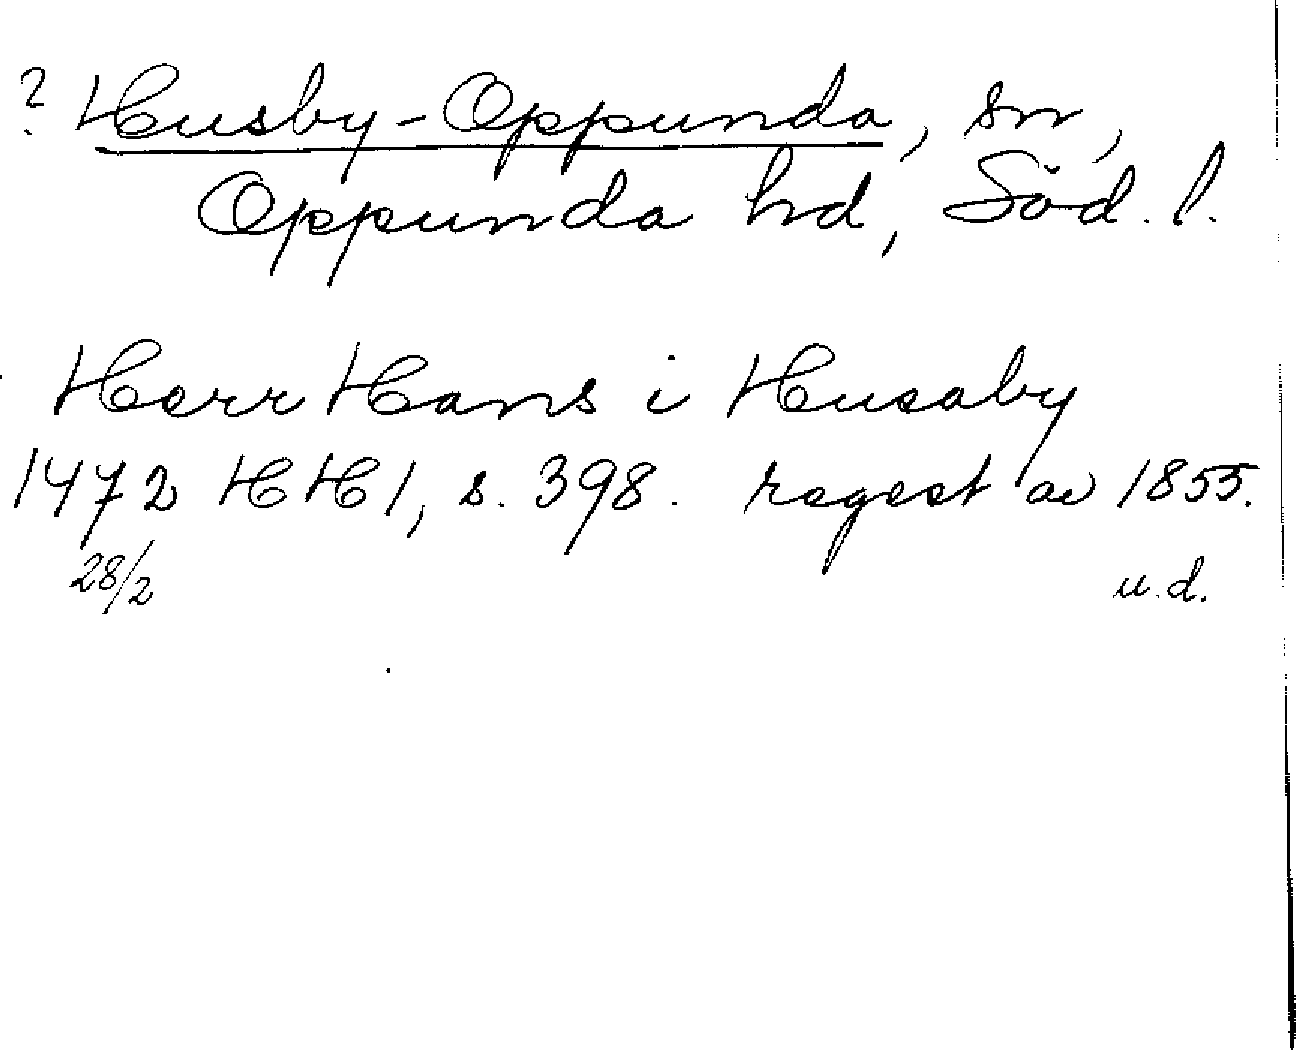 ? Husby-Oppunda, sn,
Oppunda hd, Söd. l.
Herr Hans i Husaby
1472 HH 1, s. 398. regest av 1855.
28/2 u.d.